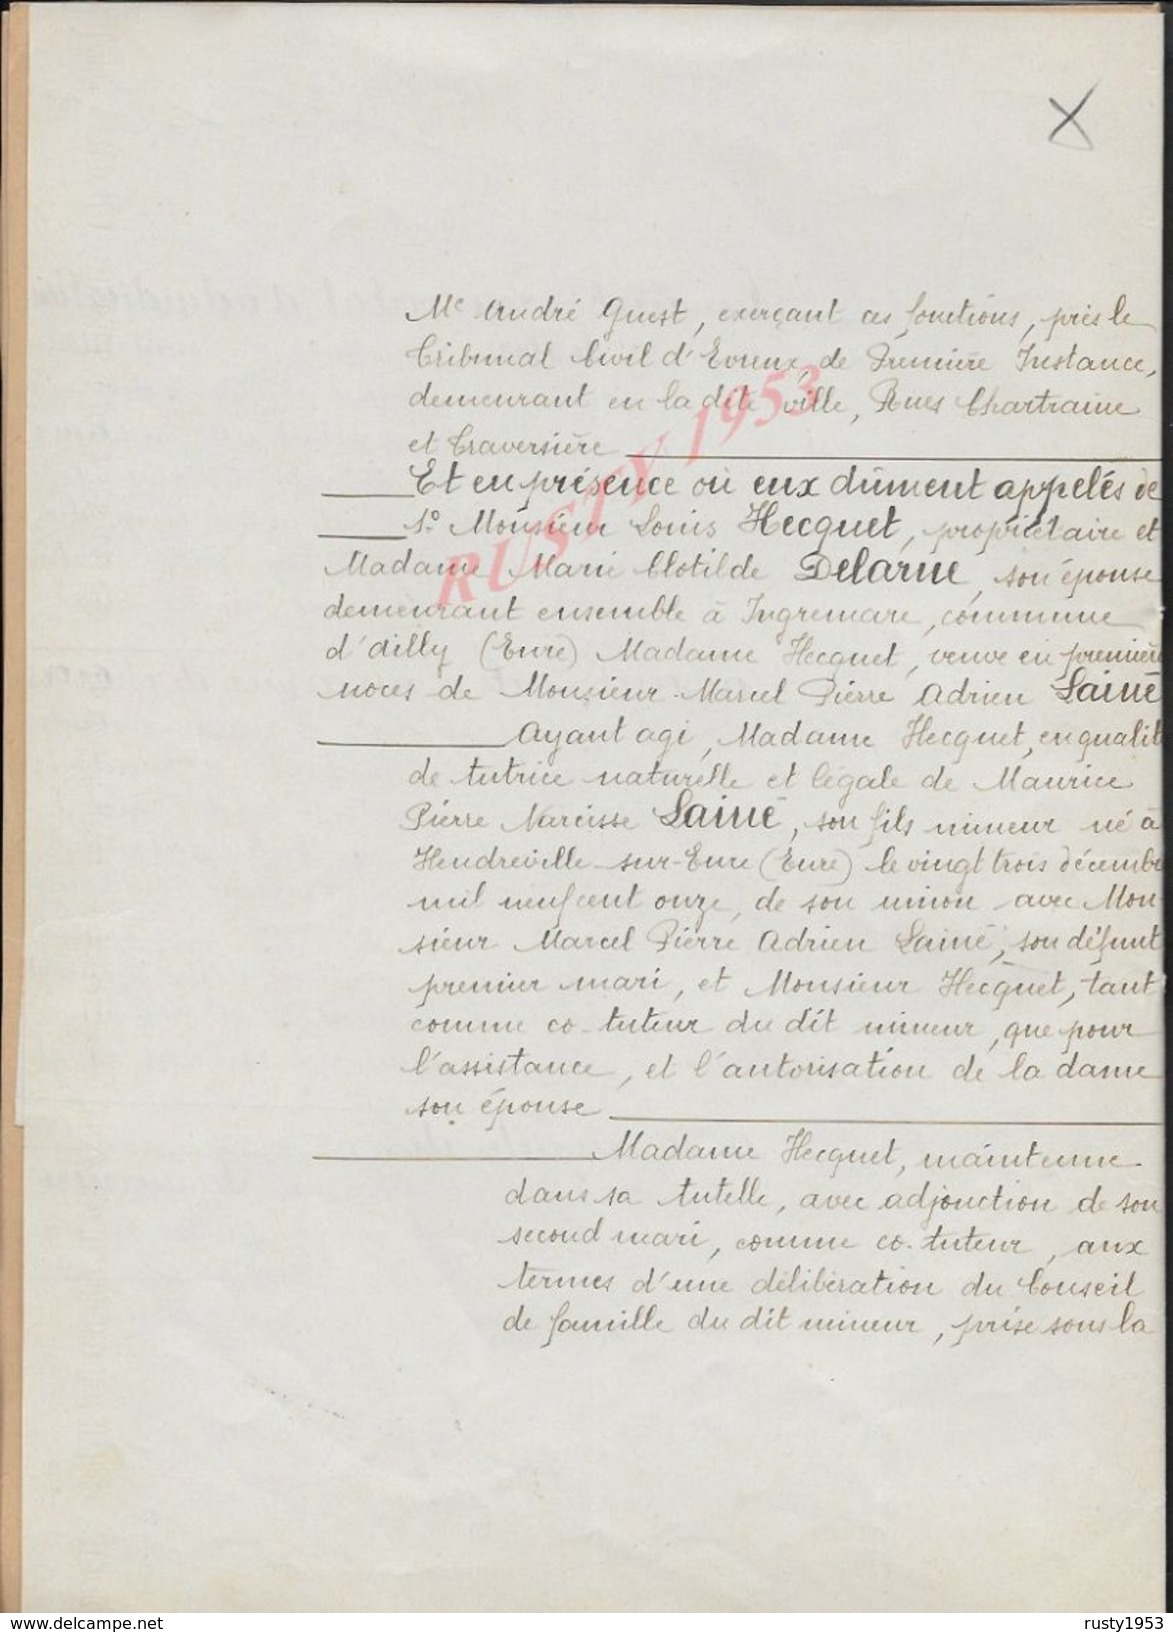 Me André Guest, exerçant ces fonctions, près le
Tribunal Civil d'Evreux, de Première Instance,
demeurant en la dite ville, Rues Chartraine
et Traversière
Et en présence où eux dûment appelés de
1° Monsieur Louis Hecquet, propriétaire et
Madame Marie Clotilde Delarue, son épouse
demeurant ensemble à Ingremare, commune
d'ailly (Eure) Madame Hecquet, veuve en première
noces de Monsieur Marcel Pierre Adrien Lainé
Ayant agi, Madame Hecquet, en qualit
de tutrice naturelle et légale de Maurice
Pierre Narcisse Lainé, son fils mineur né à
Heudreville-sur-Eure (Eure) le vingt trois décembre
mil neuf cent onze, de son union avec Mon
sieur Marcel Pierre Adrien Lainé, son défunt
premier mari, et Monsieur Hecquet, tant
comme co-tuteur du dit mineur, que pour
l'assistance, et l'autorisation de la dame
son épouse
Madame Hecquet, maintenue
dans sa tutelle, avec adjonction de son
second mari, comme co-tuteur, aux
termes d'une délibération du Conseil
de famille du dit mineur, prise sous la
RUSTY 1953
delcampe.net
rusty1953